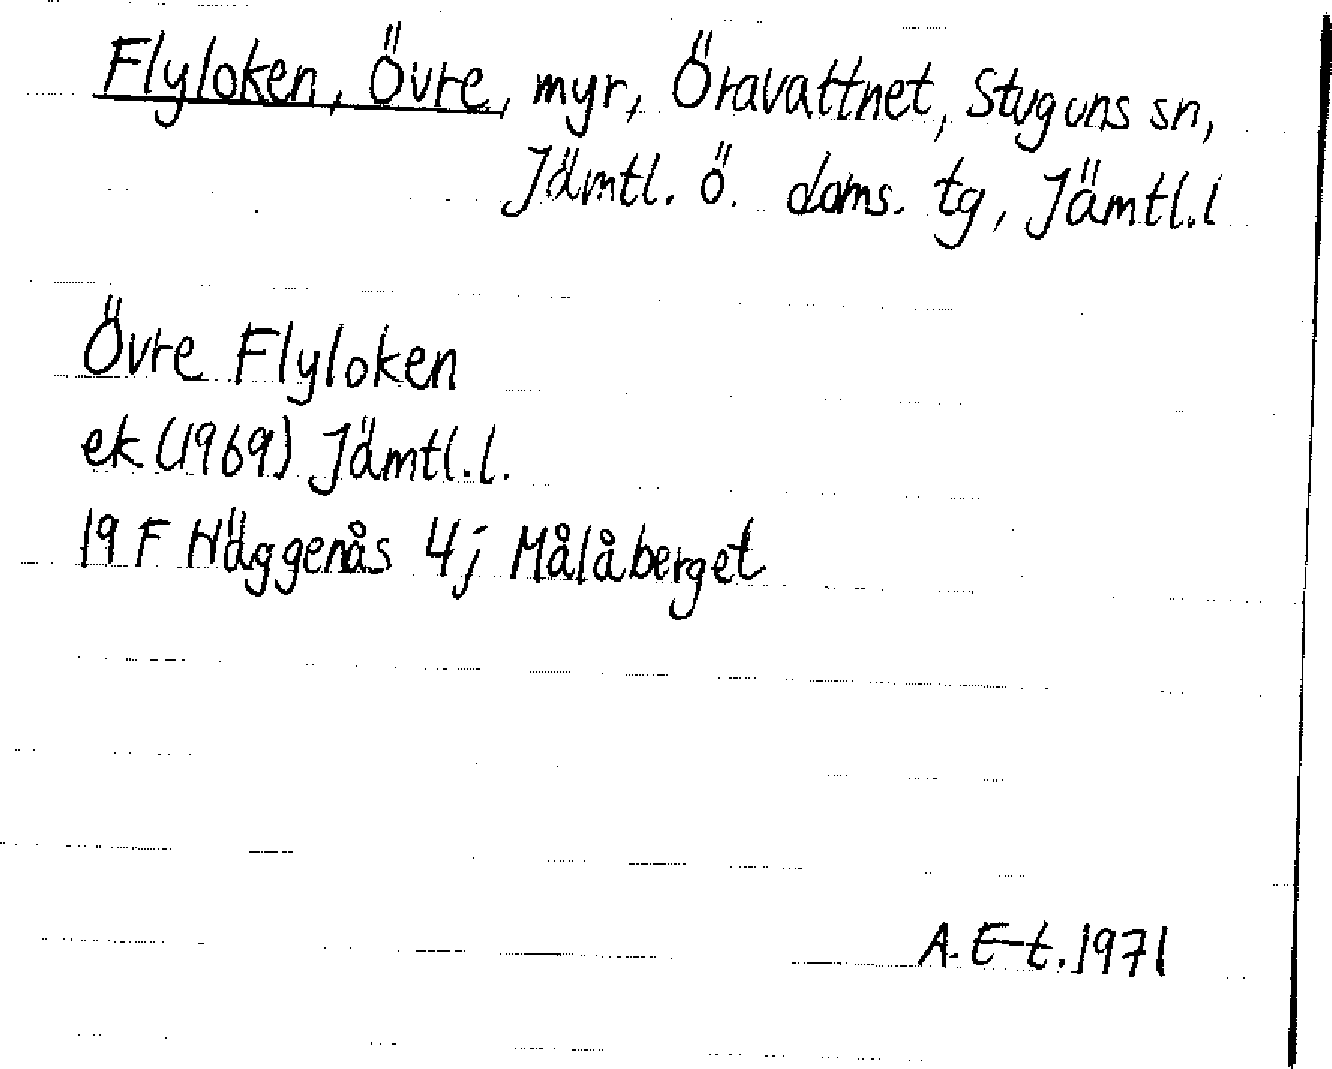 Flyloken, Övre, myr, Öravattnet, Stuguns sn,
Jämtl. ö. doms. tg, Jämtl.l
Övre Flyloken
ek (1969) Jämtl.l.
19 F Häggenås 4j Målåberget
A. E-t. 1971